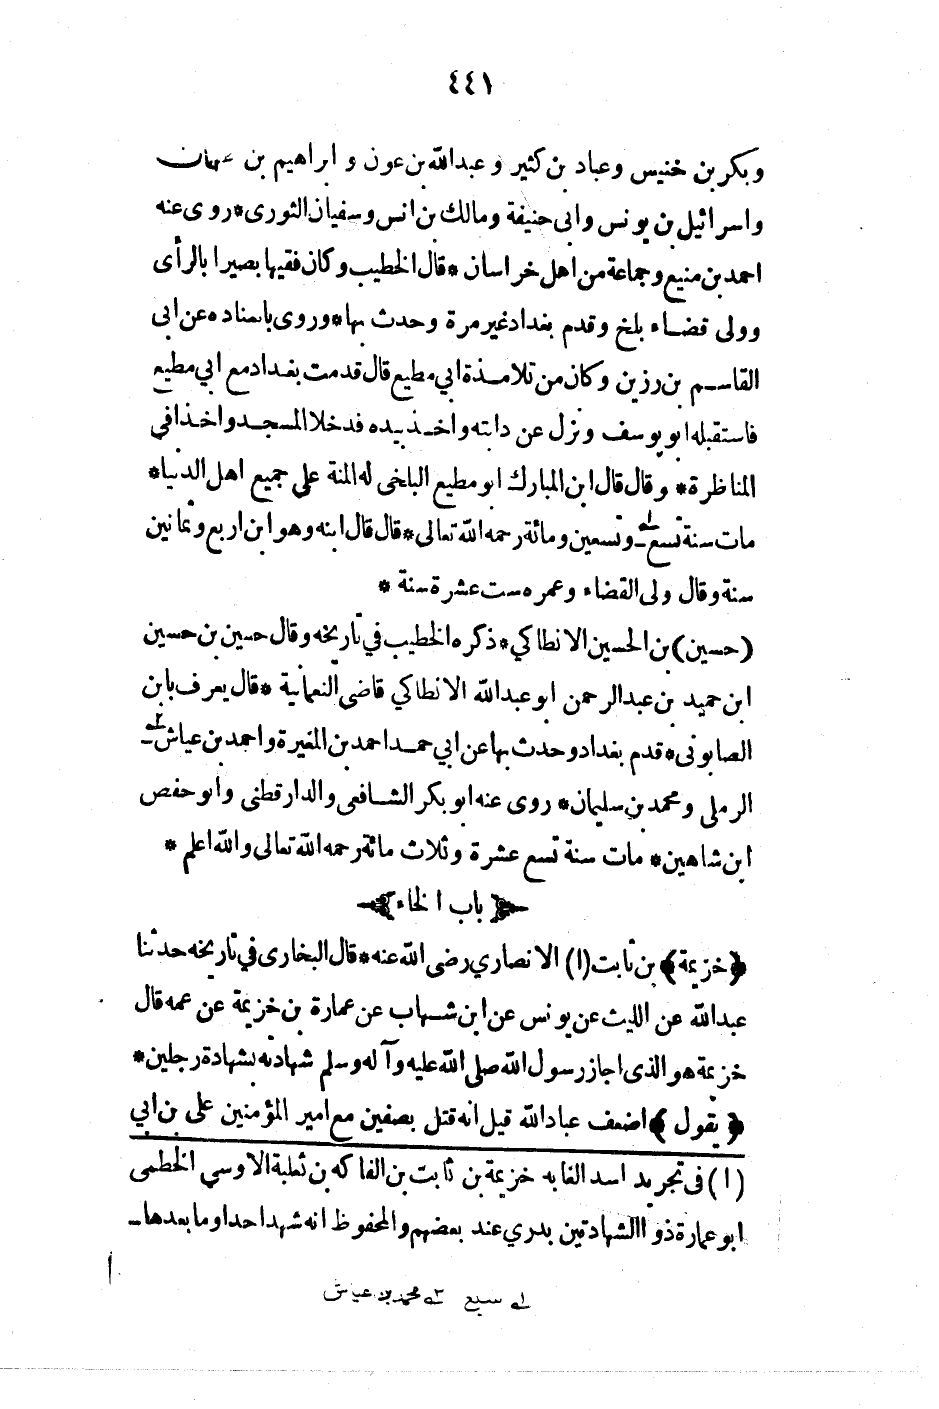 ٤٤١
وبكر بن خنيس وعباد بن كثير وعبدالله بن عون وابراهيم بن طهمان
واسرائيل بن يونس وابى حنيفة ومالك بن انس وسفيان الثورى * روى عنه
احمد بن منيع وجماعة من اهل خراسان * قال الخطيب وكان فقيها بصيرا بالرأى
وولى قضاء بلخ وقدم بغداد غير مرة وحدث بها * وروى باسناده عن ابى
القاسم بن رزين وكان من تلامذة ابي مطيع قال قدمت بغداد مع ابي مطيع
فاستقبله ابو يوسف ونزل عن دابته واخذ بيده فدخلا المسجد واخذا في
المناظرة * وقال قال ابن المبارك ابو مطيع البلخى له المنة على جميع اهل الدنيا *
مات سنة تسع لـه وتسعين ومائة رحمه الله تعالى * قال قال ابنه وهو ابن اربع وثمانين
سنة وقال ولى القضاء وعمره ست عشرة سنة *
(حسين) بن الحسين الانطاكي * ذكره الخطيب في تاريخه وقال حسين بن حسين
ابن حميد بن عبد الرحمن ابو عبدالله الانطاكي قاضى النعمانية * قال يعرف بابن
الصابونى * قدم بغداد وحدث بها عن ابي حمد احمد بن المغيرة واحمد بن عياش ٢ـه
الرملى ومحمد بن سليمان * روى عنه ابو بكر الشافعى والدارقطنى وابو حفص
ابن شاهين * مات سنة تسع عشرة وثلاث مائة رحمه الله تعالى والله اعلم *
باب الخاء
﴿خزيمة﴾ بن ثابت (١) الانصاري رضى الله عنه * قال البخارى في تاريخه حدثنا
عبدالله عن الليث عن يونس عن ابن شهاب عن عمارة بن خزيمة عن عمه قال
خزيمة هو الذى اجاز رسول الله صلى الله عليه وآله وسلم شهادته بشهادة رجلين *
﴿يقول﴾ اضعف عباد الله قيل انه قتل بصفين مع امير المؤمنين على بن ابي
(١) فى تجريد اسد الغابه خزيمة بن ثابت بن الفاكه بن ثعلبة الاوسي الخطمى
ابو عمارة ذو الشهادتين بدري عند بعضهم والمحفوظ انه شهد احدا وما بعدها ـ
لـه سبع ٢ـه محمد بن عياش